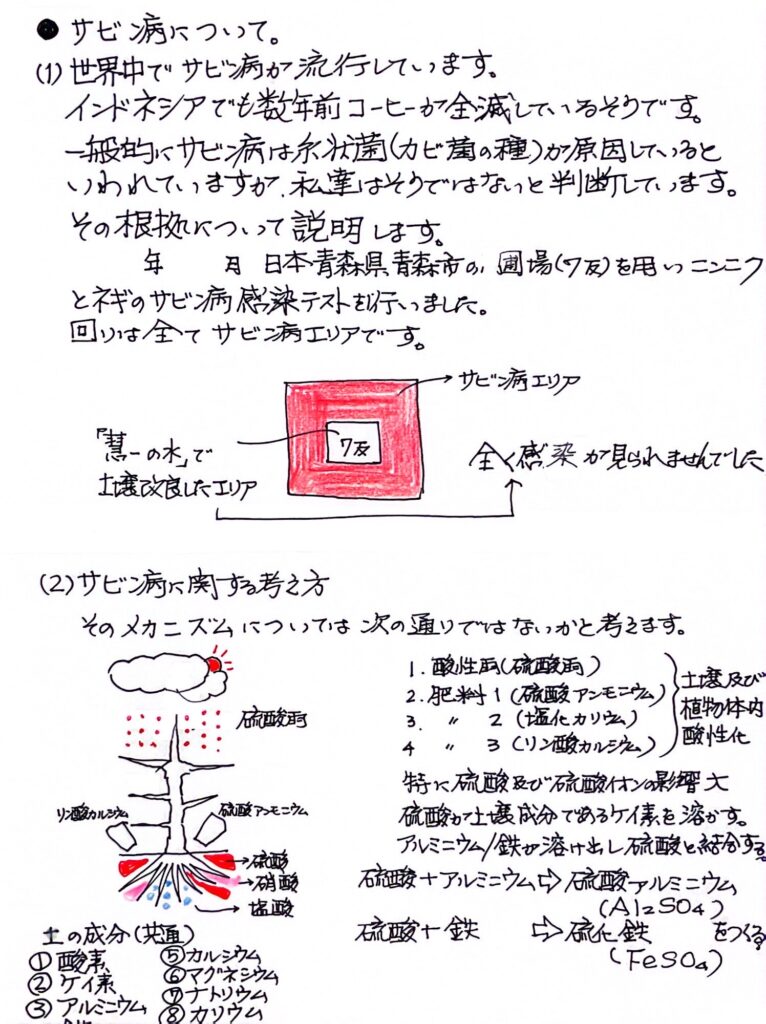 ● サビン病について。
(1) 世界中でサビン病が流行しています。
インドネシアでも数年前コーヒーが全滅しているそうです。
一般的にサビン病は糸状菌(カビ菌の種)が原因していると
いわれていますが、私達はそうではないと判断しています。
その根拠について説明します。
年 月 日本・青森県青森市の、圃場(7反)を用いニンニク
とネギのサビン病感染テストを行いました。
回りは全てサビン病エリアです。
サビン病エリア
7反
「慧一の水」で
土壌改良したエリア
全く感染が見られませんでした
(2) サビン病に関する考え方
そのメカニズムについては次の通りではないかと考えます。
硫酸雨
リン酸カルシウム
硫酸アンモニウム
硫酸
硝酸
塩酸
1. 酸性雨(硫酸雨)
2. 肥料1(硫酸アンモニウム)
3. 〃 2(塩化カリウム)
4 〃 3(リン酸カルシウム)
土壌及び
植物体内
酸性化
特に硫酸及び硫酸イオンの影響大
硫酸が土壌成分であるケイ素を溶かす。
アルミニウム/鉄が溶け出し硫酸と結合する。
硫酸+アルミニウム⇨硫酸アルミニウム
(Al2SO4)
硫酸+鉄 ⇨硫化鉄 をつくる
(FeSO4)
土の成分(共通)
① 酸素
② ケイ素
③ アルミニウム
⑤ カルシウム
⑥ マグネシウム
⑦ ナトリウム
⑧ カリウム